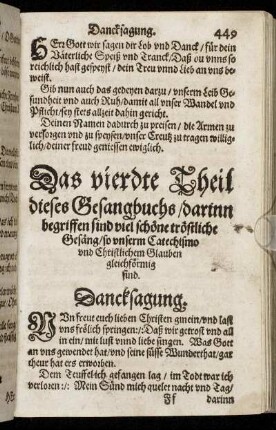 Dancksagung. 449
HErr Gott wir sagen dir Lob vnd Danck / für dein
Väterliche Speiß vnd Tranck / Daß du vnns so
reichlich hast gespeyst / dein Treu vnnd Lieb an vns be-
weist.
Gib nun auch das gedeyen darzu / vnserm Leib Ge-
sundheit vnd auch Ruh / damit all vnser Wandel vnd
Pflicht / sey stets allzeit dahin gericht.
Deinen Namen dadurch zu preisen / die Armen zu
versorgen vnd zu speysen / vnser Creutz zu tragen willig-
lich / deiner freud geniessen ewiglich.
Das vierdte Theil
dieses Gesangbuchs / darinn
begriffen sind viel schöne tröstliche
Gesäng / so vnserm Catechismo
vnd Christlichem Glauben
gleichförmig
sind.
Dancksagung.
NUn freut euch lieben Christen gmein / vnd last
vns frölich springen :/: Daß wir getrost vnd all
in ein / mit lust vnnd liebe singen. Was Gott
an vns gewendet hat / vnd seine süsse Wunderthat / gar
theur hat ers erworben.
Dem Teuffelich gefangen lag / im Todt war ich
verloren :/: Mein Sünd mich quelet nacht vnd Tag /
Ff darinn